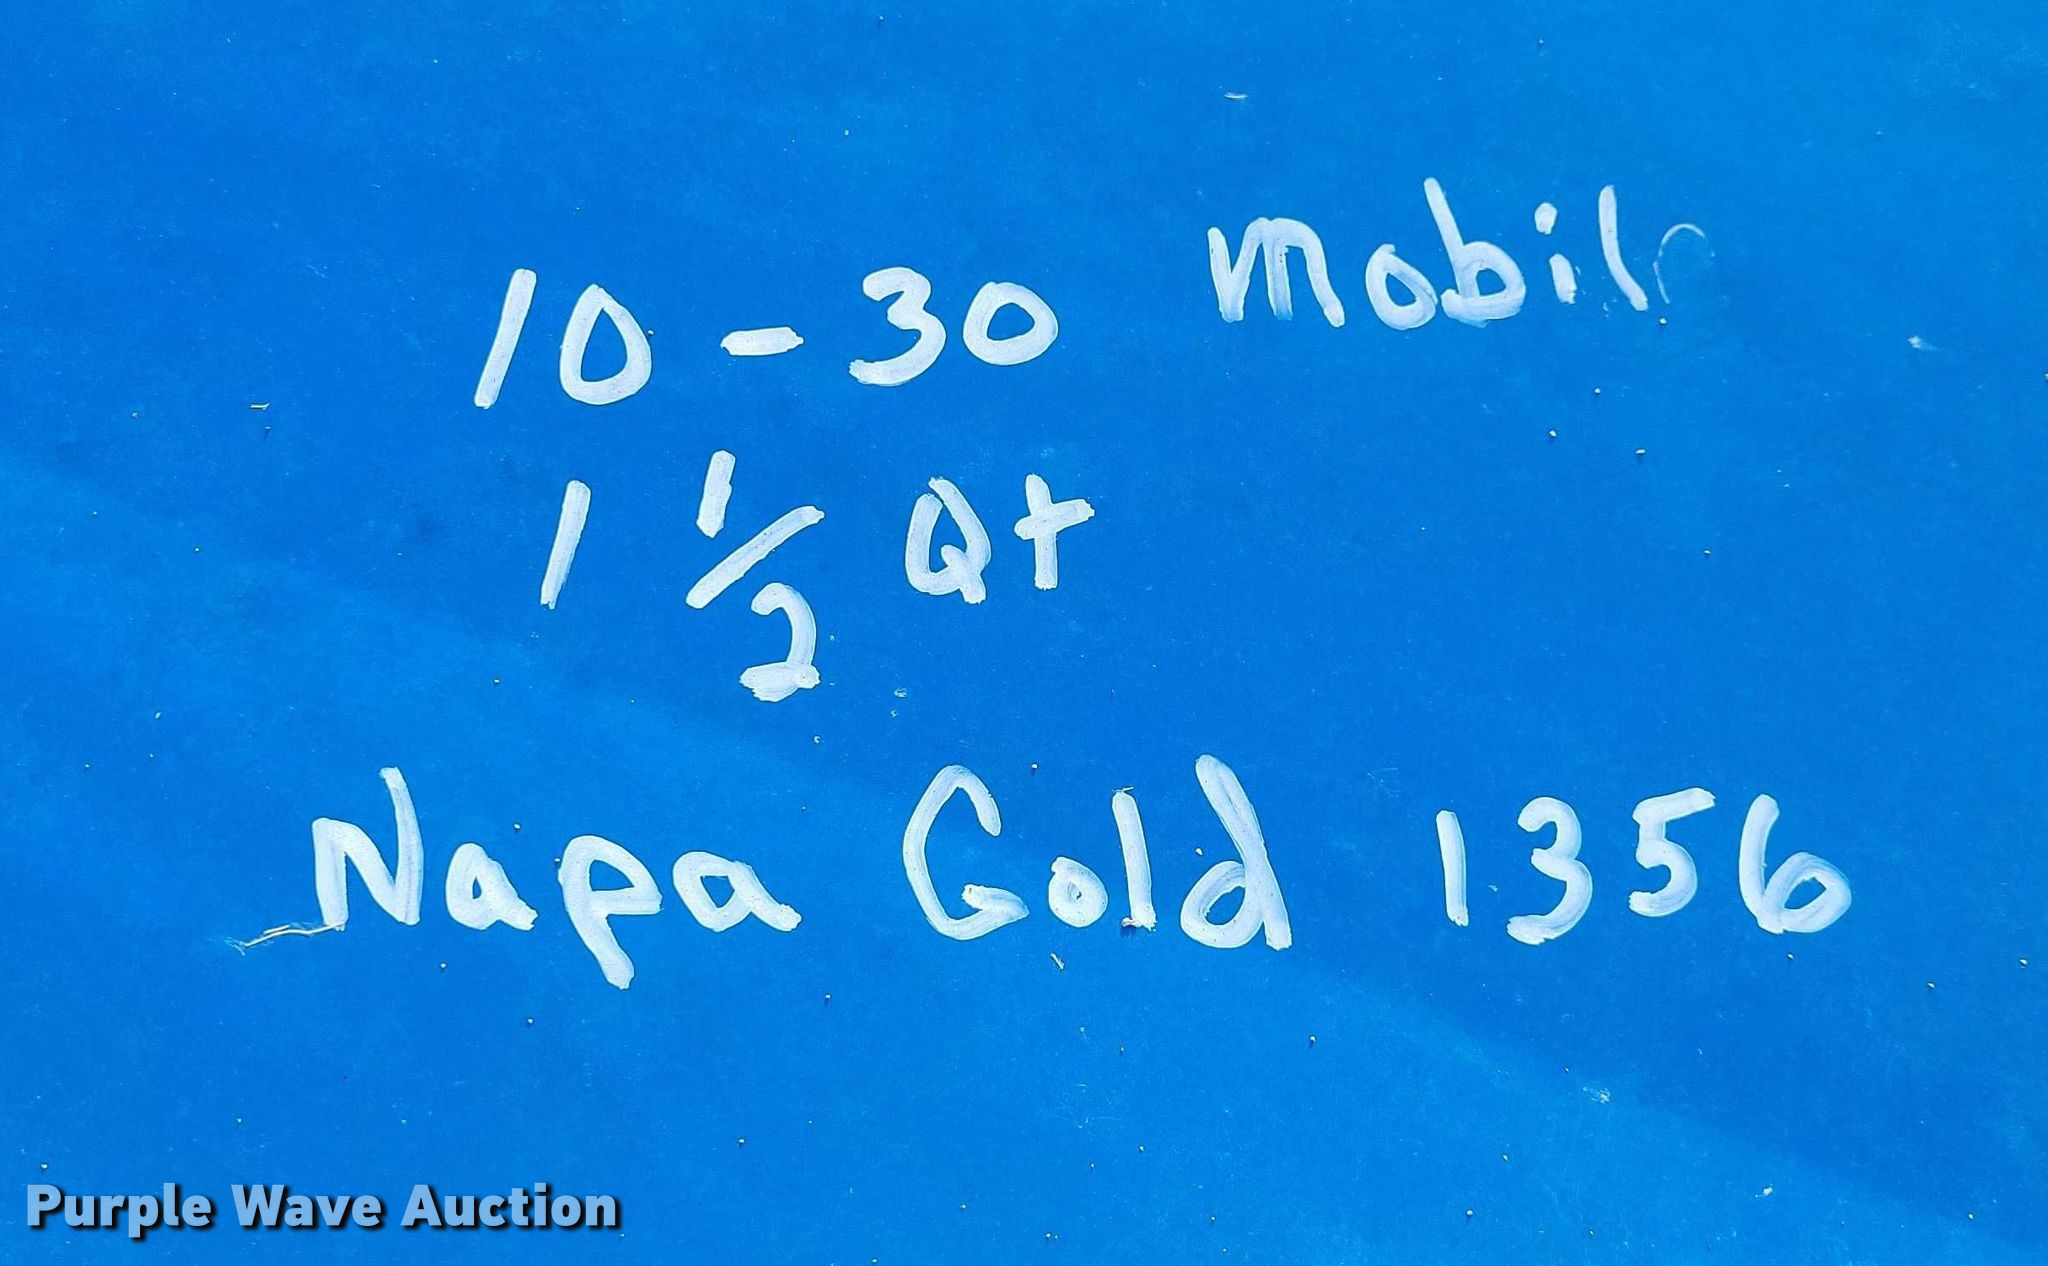 10-30 mobil
1 1/2 Qt
Napa Gold 1356
Purple Wave Auction